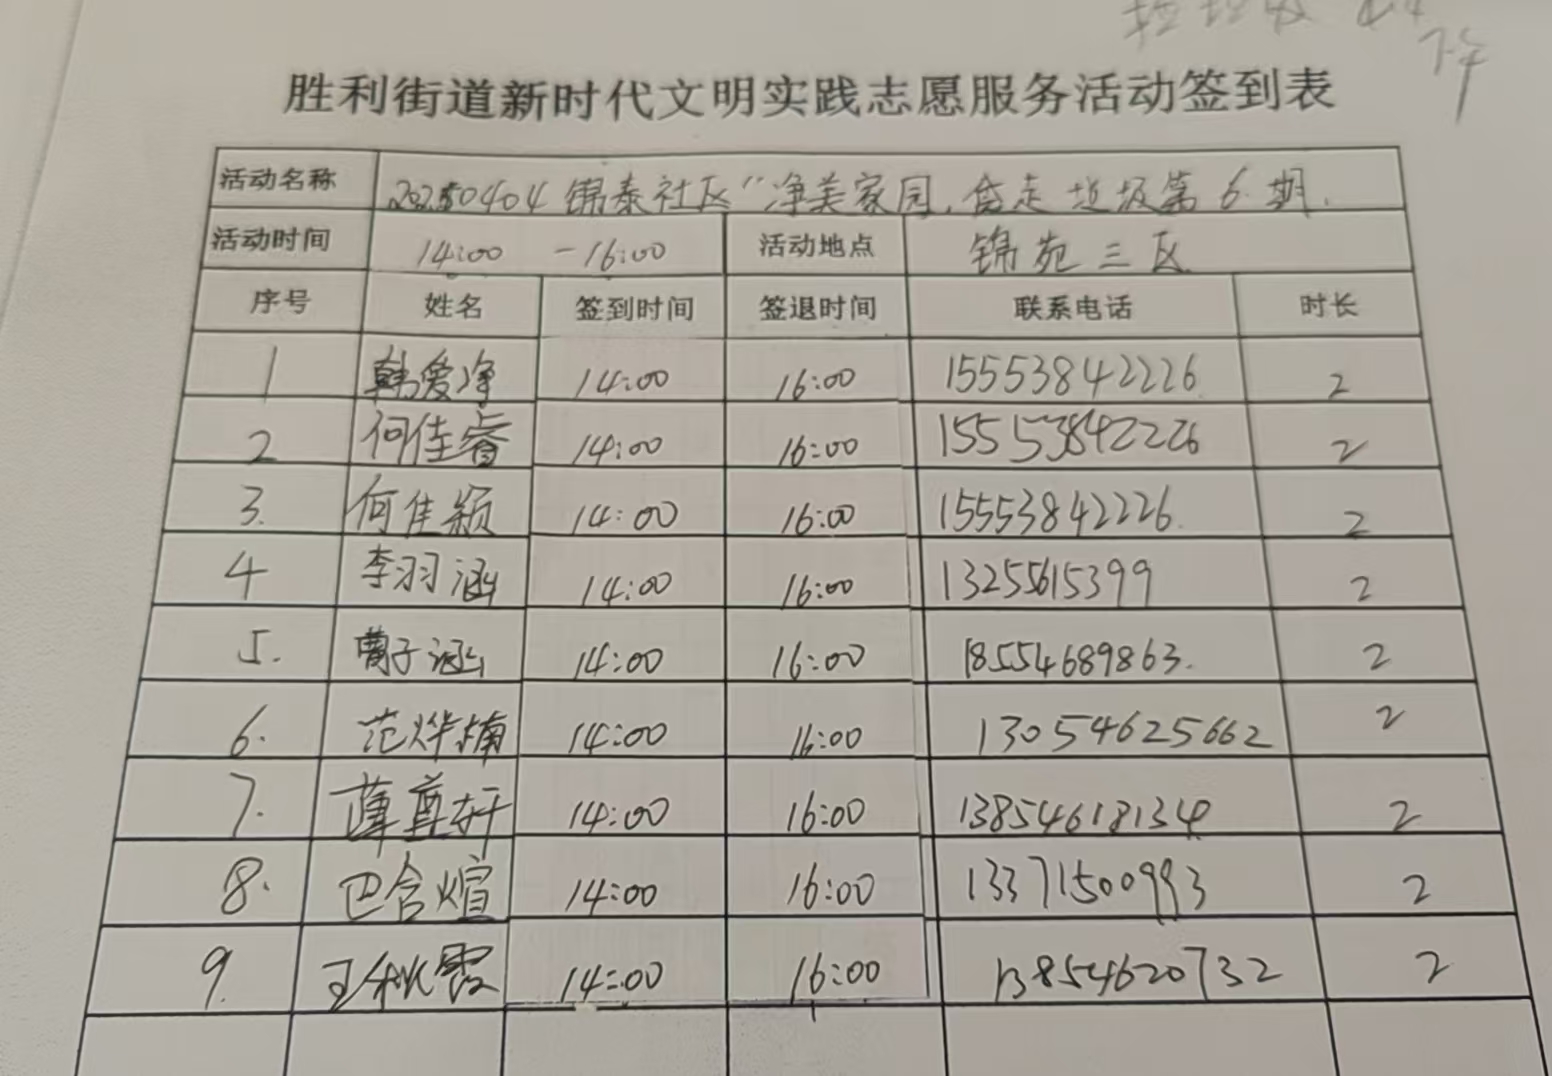 胜利街道新时代文明实践志愿服务活动签到表
活动名称 20250404 锦泰社区"净美家园,袋走垃圾第6期.
活动时间 14:00 -16:00 活动地点 锦苑三区
序号 姓名 签到时间 签退时间 联系电话 时长
1 韩爱净 14:00 16:00 15553842226 2
2 何佳睿 14:00 16:00 15553842226 2
3. 何佳颖 14:00 16:00 15553842226. 2
4 李羽涵 14:00 16:00 13255615399 2
5. 曹子涵 14:00 16:00 18554689863. 2
6. 范烨楠 14:00 16:00 13054625662 2
7. 薄尊轩 14:00 16:00 13854618134 2
8. 巴含煊 14:00 16:00 13371500993 2
9. 王秋霞 14:00 16:00 13854620732 2